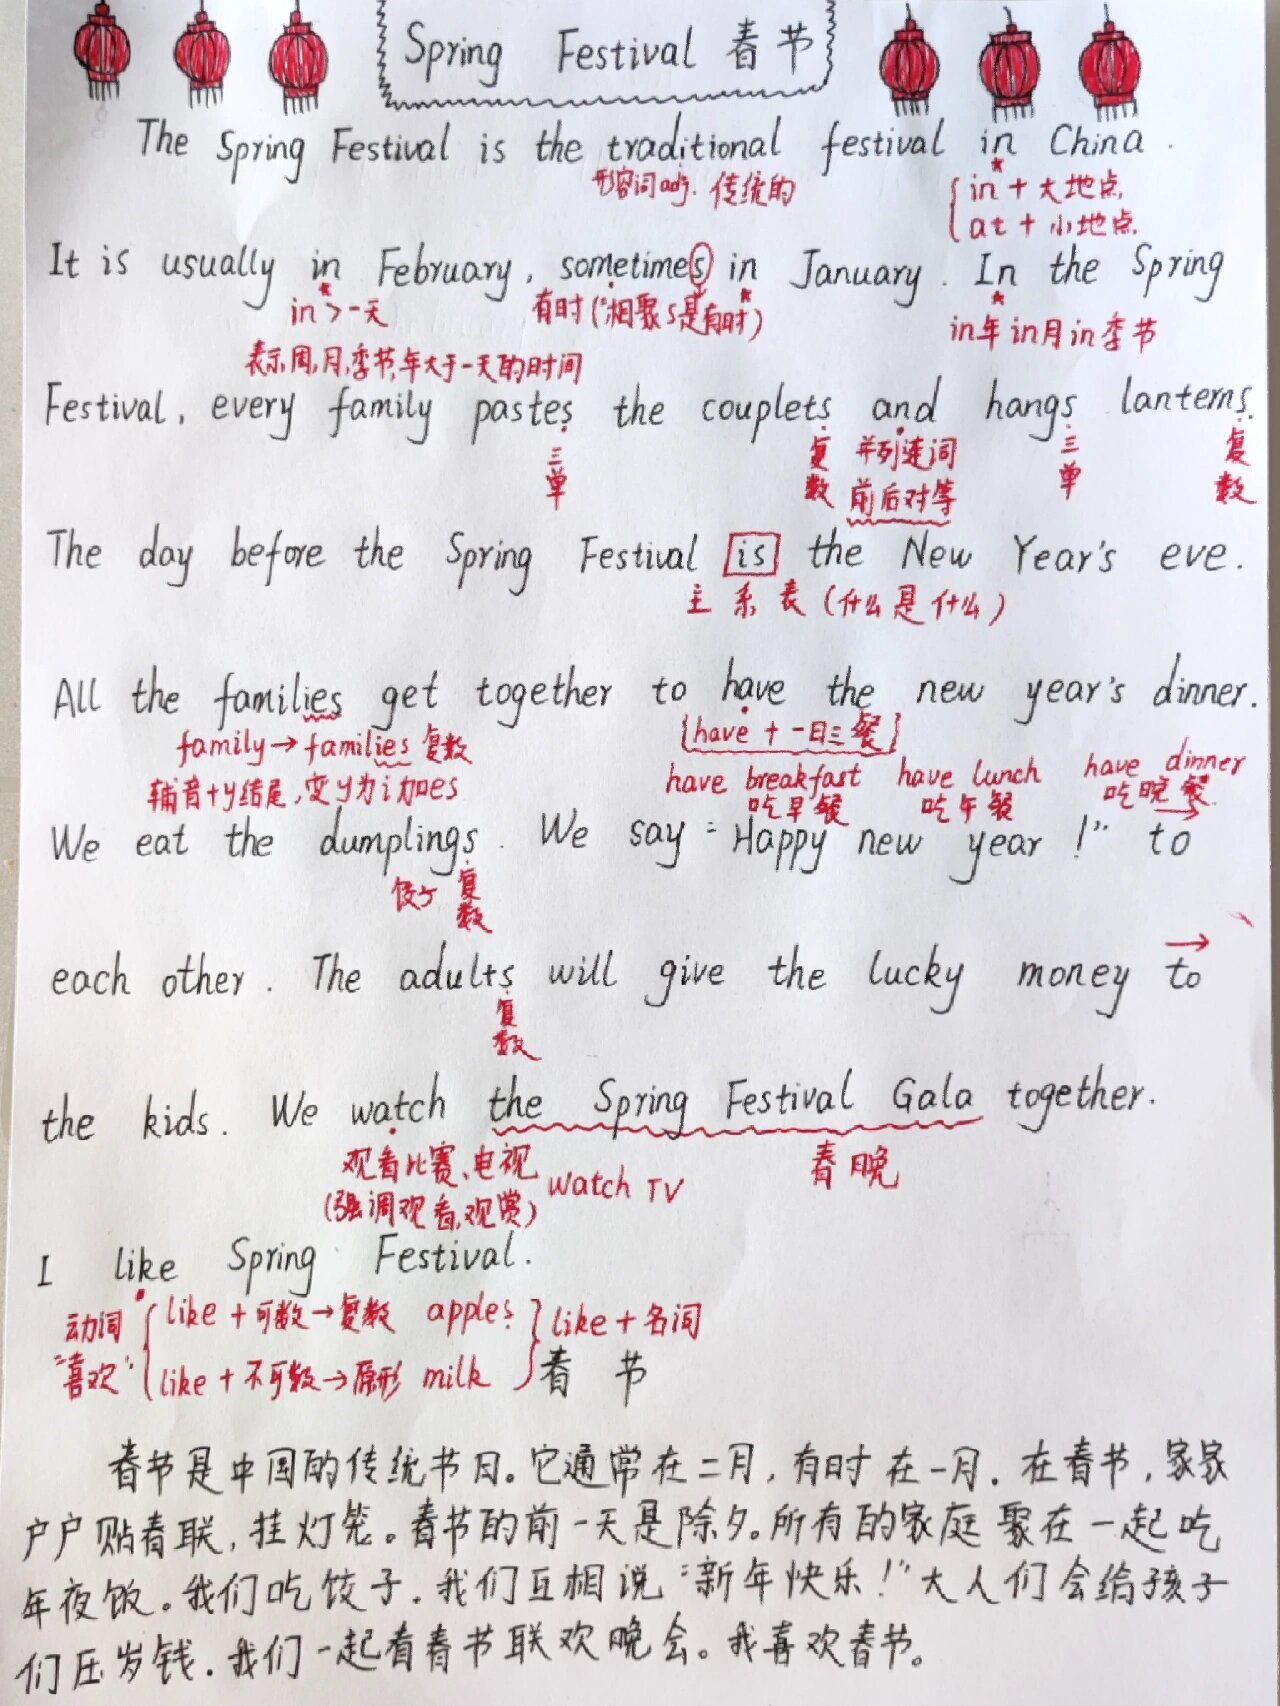 Spring Festival 春节
The Spring Festival is the traditional festival in China.
形容词adj. 传统的 in + 大地点,
at + 小地点.
It is usually in February, sometimes in January. In the Spring
in > 一天 有时("相聚s是有时) in年 in月 in季节
表示周,月,季节,年大于一天的时间
Festival, every family pastes the couplets and hangs lanterns.
三单 复数 并列连词 三单 复数
前后对等
The day before the Spring Festival is the New Year's eve.
主系表(什么是什么)
All the families get together to have the new year's dinner.
family→families 复数 {have + 一日三餐}
辅音+y结尾,变y为i加es have breakfast have lunch have dinner
吃早餐 吃午餐 吃晚餐.
We eat the dumplings. We say "Happy new year!" to
饺子 复数
each other. The adults will give the lucky money to
复数
the kids. We watch the Spring Festival Gala together.
观看比赛、电视 watch TV 春晚
(强调观看,观赏)
I like Spring Festival.
动词 like + 可数→复数 apples like + 名词
"喜欢" like + 不可数→原形 milk
春节
春节是中国的传统节日。它通常在二月,有时在一月.在春节,家家
户户贴春联,挂灯笼。春节的前一天是除夕。所有的家庭聚在一起吃
年夜饭。我们吃饺子.我们互相说"新年快乐!"大人们会给孩子
们压岁钱.我们一起看春节联欢晚会。我喜欢春节。